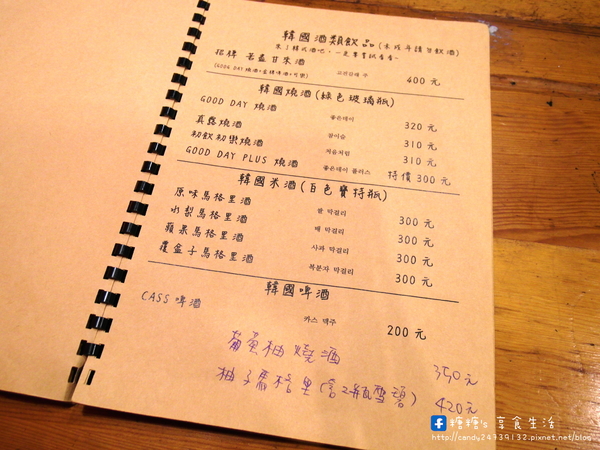 韓國酒類飲品(未成年請勿飲酒)
來！韓式酒吧，一定要嘗試看看~
招牌 苦盡甘來酒 고진감래 주 400 元
(GOOD DAY 燒酒+金牌啤酒+可樂)
韓國燒酒(綠色玻璃瓶)
GOOD DAY 燒酒 좋은데이 320 元
真露燒酒 참이슬 310 元
初飲初樂燒酒 처음처럼 310 元
GOOD DAY PLUS 燒酒 좋은데이 플러스 特價 300 元
韓國米酒(白色寶特瓶)
原味馬格里酒 쌀 막걸리 300 元
水梨馬格里酒 배 막걸리 300 元
蘋果馬格里酒 사과 막걸리 300 元
覆盆子馬格里酒 복분자 막걸리 300 元
韓國啤酒
CASS 啤酒 카스 맥주 200 元
葡萄柚燒酒 350元
柚子馬格里(含2瓶雪碧) 420元
糖糖's 享食生活
http://candy24339132.pixnet.net/blog